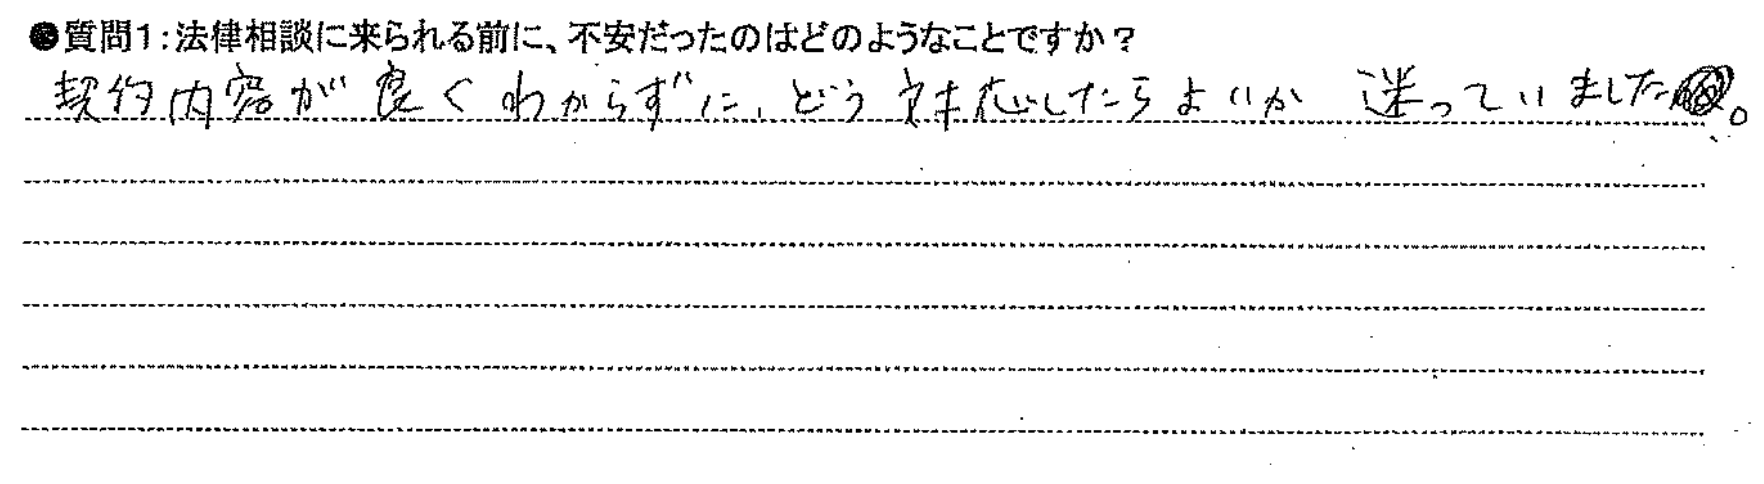 ●質問1:法律相談に来られる前に、不安だったのはどのようなことですか?
契約内容が良くわからずに、どう対応したらよいか迷っていました。